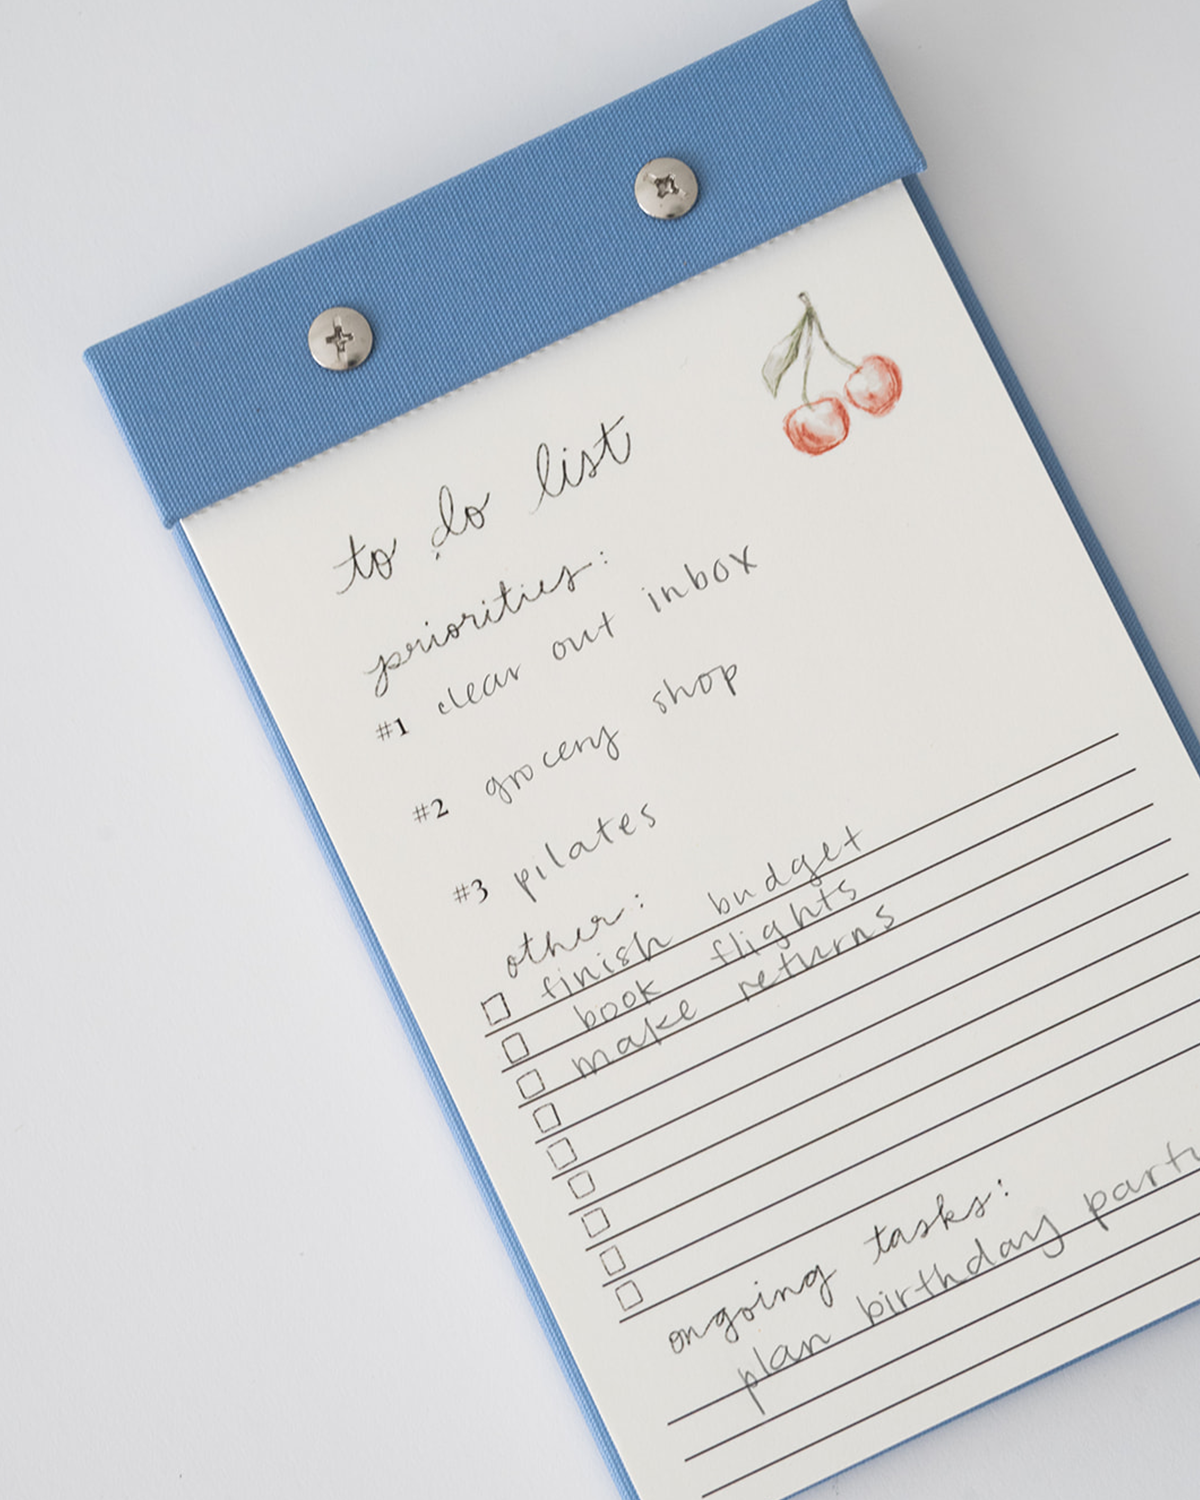 to do list
priorities:
#1 clear out inbox
#2 grocery shop
#3 pilates
other:
finish budget
book flights
make returns
ongoing tasks:
plan birthday party